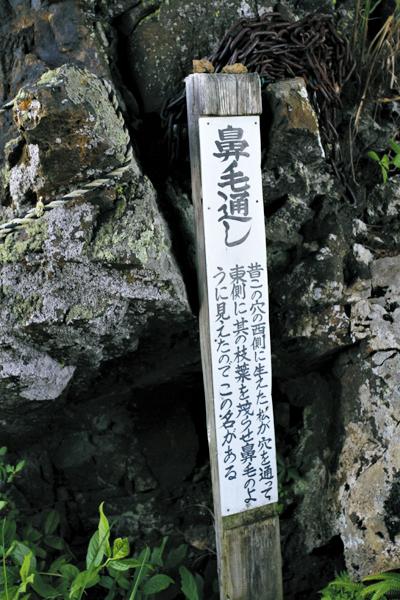 鼻毛通し
昔この穴の西側に生えた松が穴を通って
東側に其の枝葉を茂らせ鼻毛のよ
うに見えたのでこの名がある